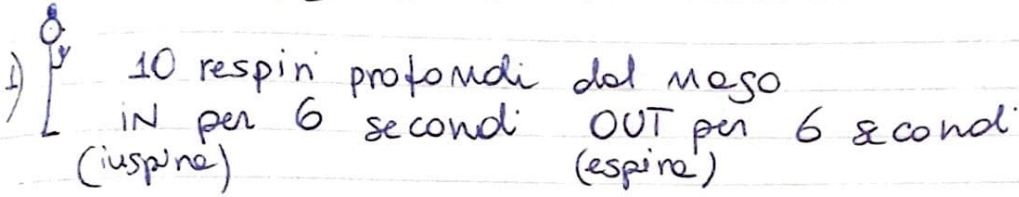 1) 10 respiri profondi dal naso
IN per 6 secondi OUT per 6 secondi
(inspira) (espira)